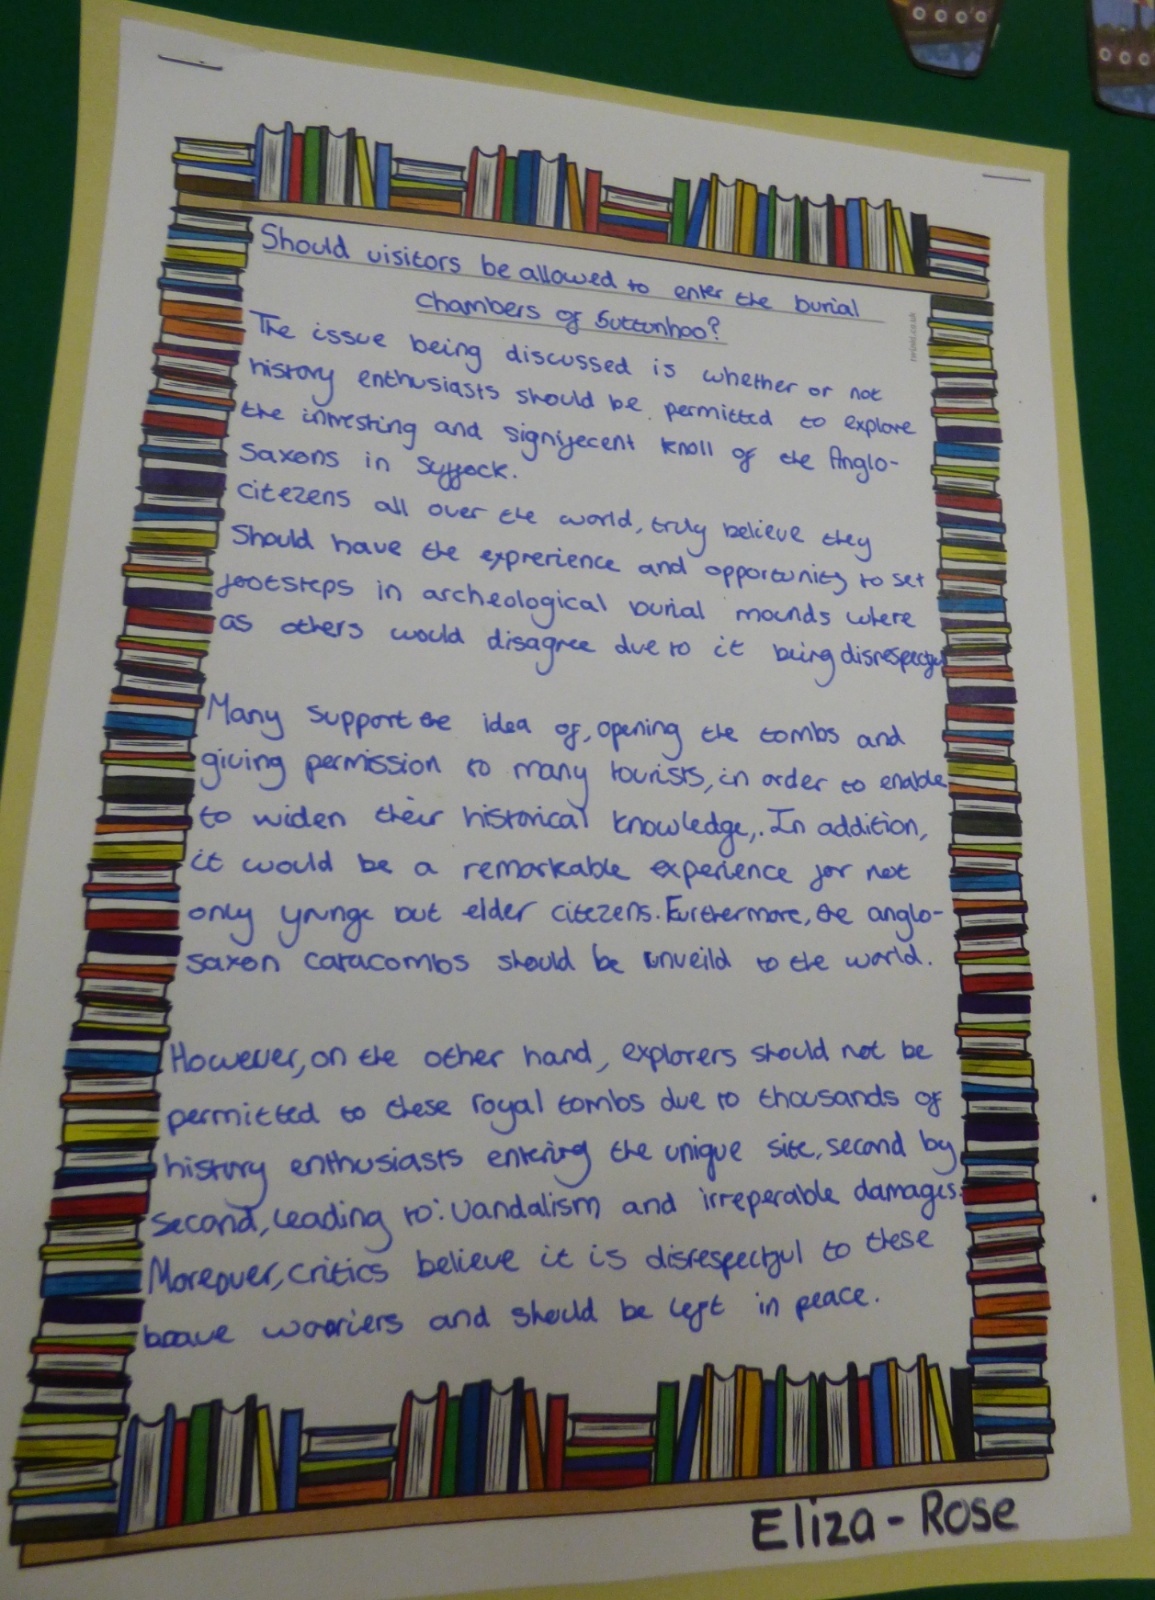 Should visitors be allowed to enter the burial
chambers of Suttonhoo?
The issue being discussed is whether or not
history enthusiasts should be permitted to explore
the intresting and signifecent knoll of the Anglo-
Saxons in Syffock.
citezens all over the world, truly believe they
Should have the exprerience and opportunity to set
footsteps in archeological burial mounds where
as others would disagree due to it being disrespectful
Many support the idea of, opening the tombs and
giving permission to many tourists, in order to enable
to widen their historical knowledge,. In addition,
it would be a remarkable experience for not
only yrunge but elder citezens. Furthermore, the anglo-
saxon catacombs should be unveild to the world.
However, on the other hand, explorers should not be
permitted to these royal tombs due to thousands of
history enthusiasts entering the unique site, second by
second, leading to: vandalism and irreperable damages.
Moreover, critics believe it is disrespectful to these
brave worriers and should be left in peace.
Eliza-Rose